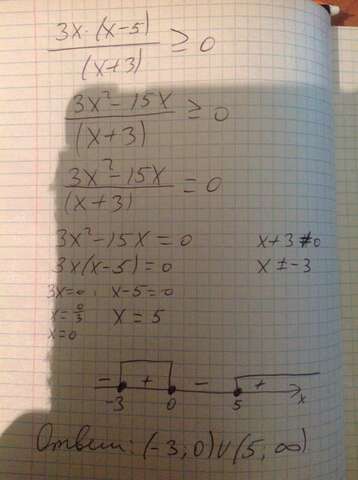 3x·(x-5)
(x+3) ≥ 0
3x²-15x
(x+3) ≥ 0
3x²-15x
(x+3) = 0
3x²-15x=0 x+3≠0
3x(x-5)=0 x≠-3
3x=0 x-5=0
x=0/3 x=5
x=0
- + - +
-3 0 5 x
Ответ: (-3,0)∪(5,∞)